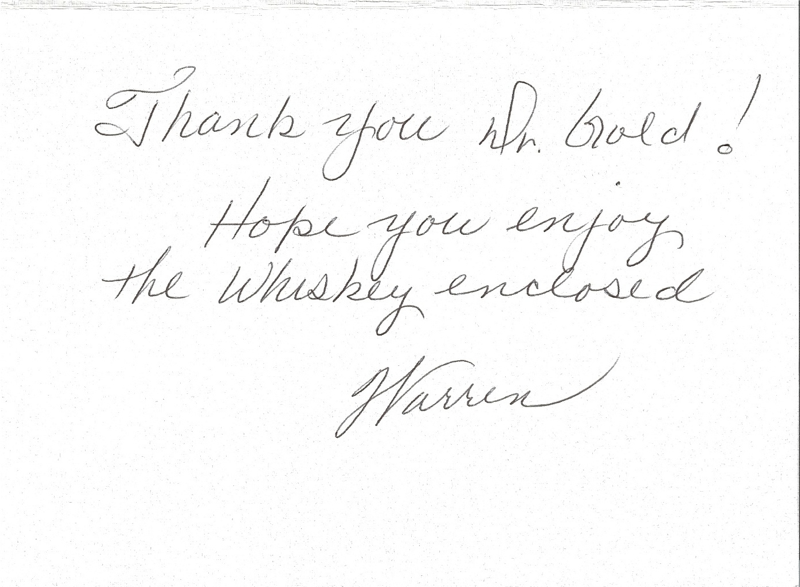 Thank you Dr. Gold!
Hope you enjoy
the Whiskey enclosed
Warren